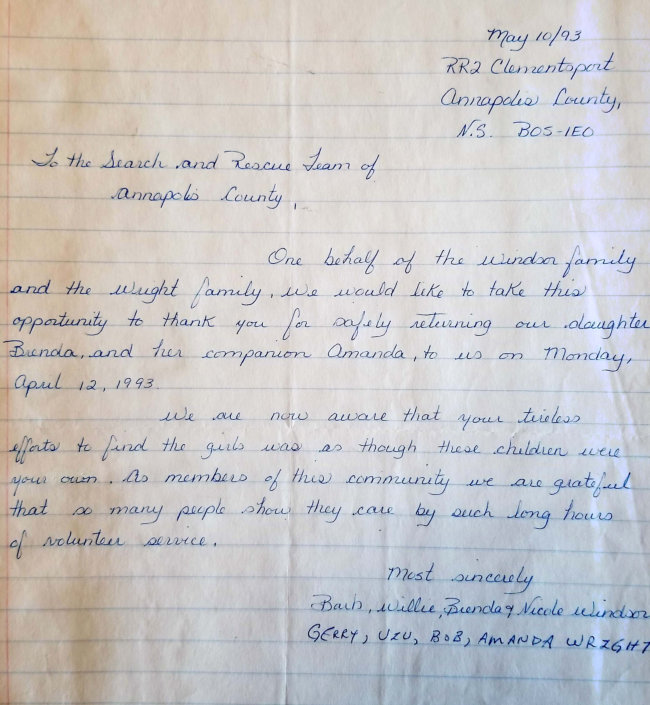 May 10/93
RR2 Clementsport
Annapolis County,
N.S. BOS-1EO
To the Search and Rescue Team of
Annapolis County,
One behalf of the Windsor family
and the Wright family, we would like to take this
opportunity to thank you for safely returning our daughter
Brenda, and her companion Amanda, to us on Monday,
April 12, 1993.
We are now aware that your tireless
efforts to find the girls was as though these children were
your own. As members of this community we are grateful
that so many people show they care by such long hours
of volunteer service.
Most sincerely
Barb, Willie, Brenda & Nicole Windsor
GERRY, BOB, AMANDA WRIGHT